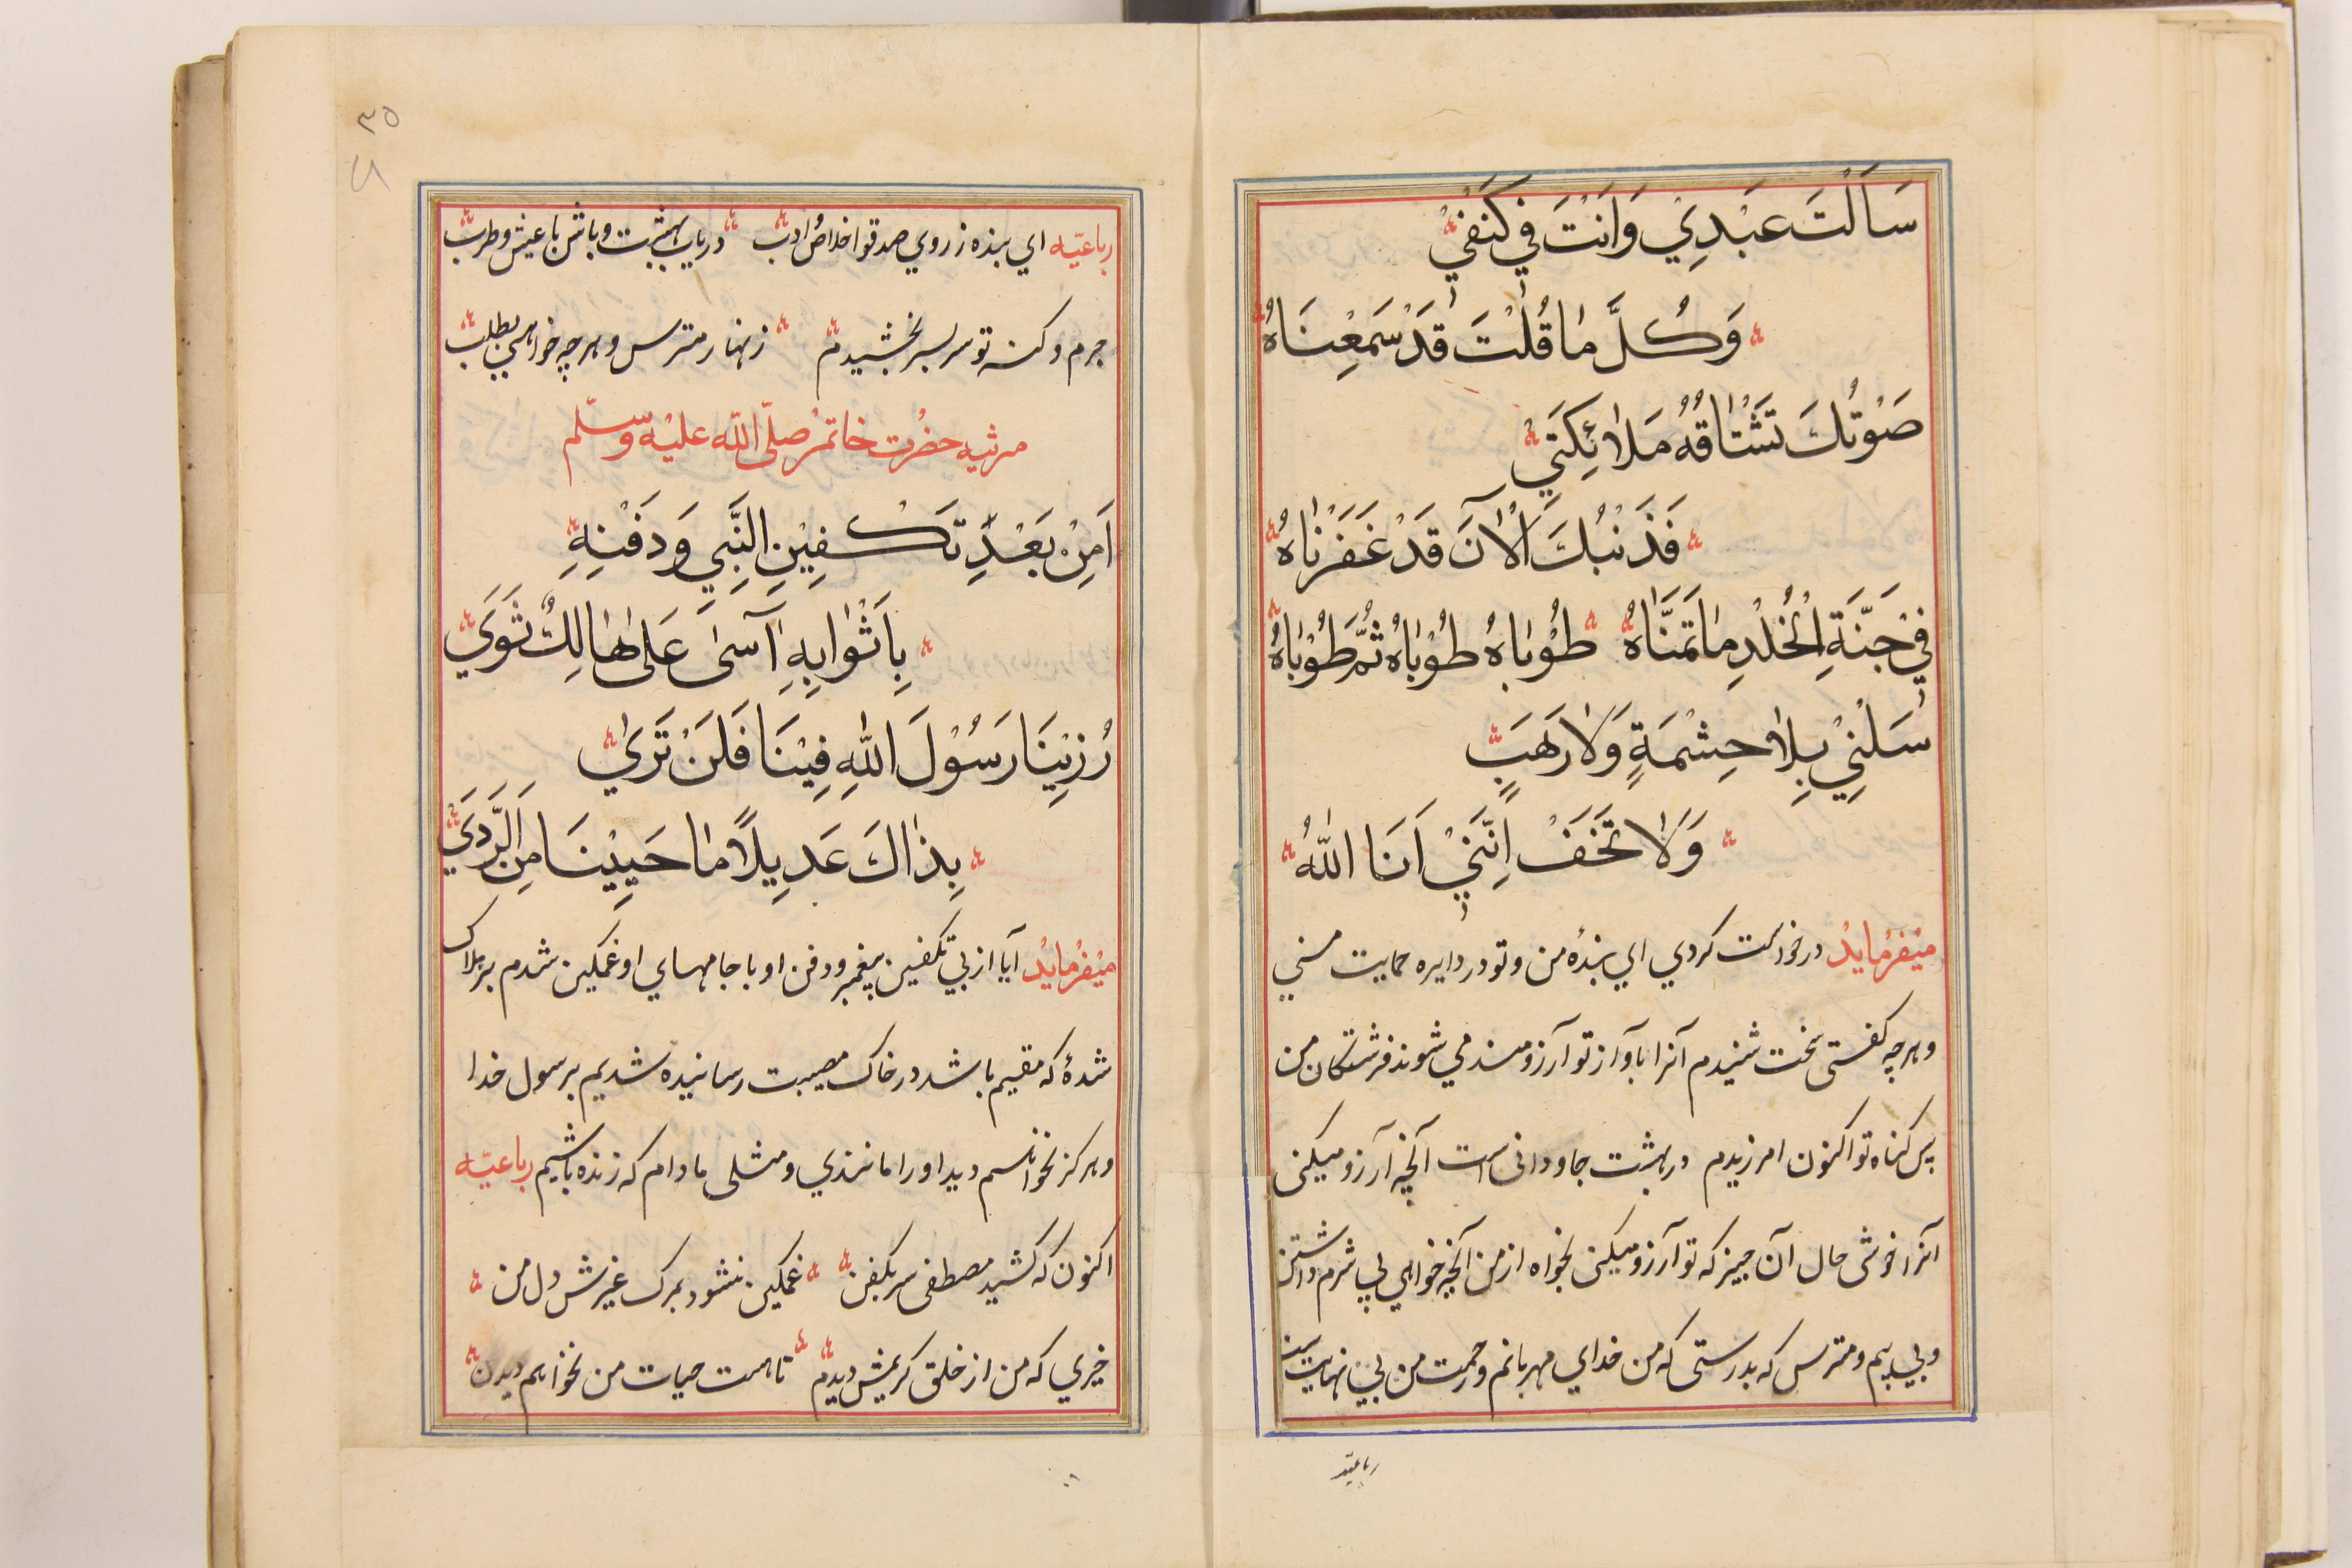 سَاَلْتَ عَبْدِيْ وَاَنْتَ فِي كَنَفِيْ
وَكُلَّ مٰا قُلْتَ قَدْ سَمَعِنَاهُ
صَوْتُكَ تَشْتٰاقُهُ مَلٰائِكَتِي
فَذَنْبُكَ اَلْآنَ قَدْ غَفَرْنٰاهُ
فِيْ جَنَّةِ الْخُلْدِ مٰا تَمَنَّاهُ طُوْبٰاهُ طُوْبٰاهُ ثُمَّ طُوْبٰاهُ
سَلْنِيْ بِلٰا حِشْمَةٍ وَلٰا رَهَبٍ
وَلٰا تَخَفْ اِنَّنِيْ اَنَا اللّٰهُ
ميفرمايد درخواست كردي اي بندهٔ من و تو در دايره حمايت مني
و هرچه كفتى سخت شنيدم آنرا بآواز تو آرزومند مي شوند فرشتكان من
پس كناه تو اكنون امرزيدم در بهشت جاودانى است آنچه آرزو ميكنى
آنرا خوشى حال آن چيز كه تو آرزو ميكنى بخواه از من آنچه خواهي بي شرم داشتن
و بي بيم و مترس كه بدرستى كه من خداي مهربانم و رحمت من بي نهايت است
رباعيّه
٣٥
رباعيّه اي بنده ز روي صدق و اخلاص و ادب درياب بهشت و باش با عيش و طرب
جرم و كنه تو سر بسر بخشيدم زنهار مترس و هر چه خواهي بطلب
مرثيه حضرت خاتم صلّى اللّه عليْه وسلّم
اَمِنْ بَعْدِ تَكْفِيْنِ النَّبِي وَدَفْنِهِ
بِاَثْوٰابِهِ آسىٰ عَلىٰ هٰالِكٍ ثَوَي
رُزِيْنَا رَسُوْلَ اللّٰهِ فِيْنَا فَلَنْ تَرىٰ
بِذٰاكَ عَدِيلًا مٰا حَيِيْنَا مِنَ الرَّدَي
ميفرمايد آيا از پي تكفين پيغمبر و دفن او با جامهاي او غمكين شدم بر هلاك
شدهٔ كه مقيم باشد در خاك مصيبت رسانيده شديم برسول خدا
و هركز نخواهيم ديد او را مانندي و مثلى مادام كه زنده باشيم رباعيّه
اكنون كه كشيد مصطفى سر بكفن غمكين نشود بمرك غيرش دل من
خيري كه من از خلق كريمش ديدم تا هست حيات من نخواهم ديدن